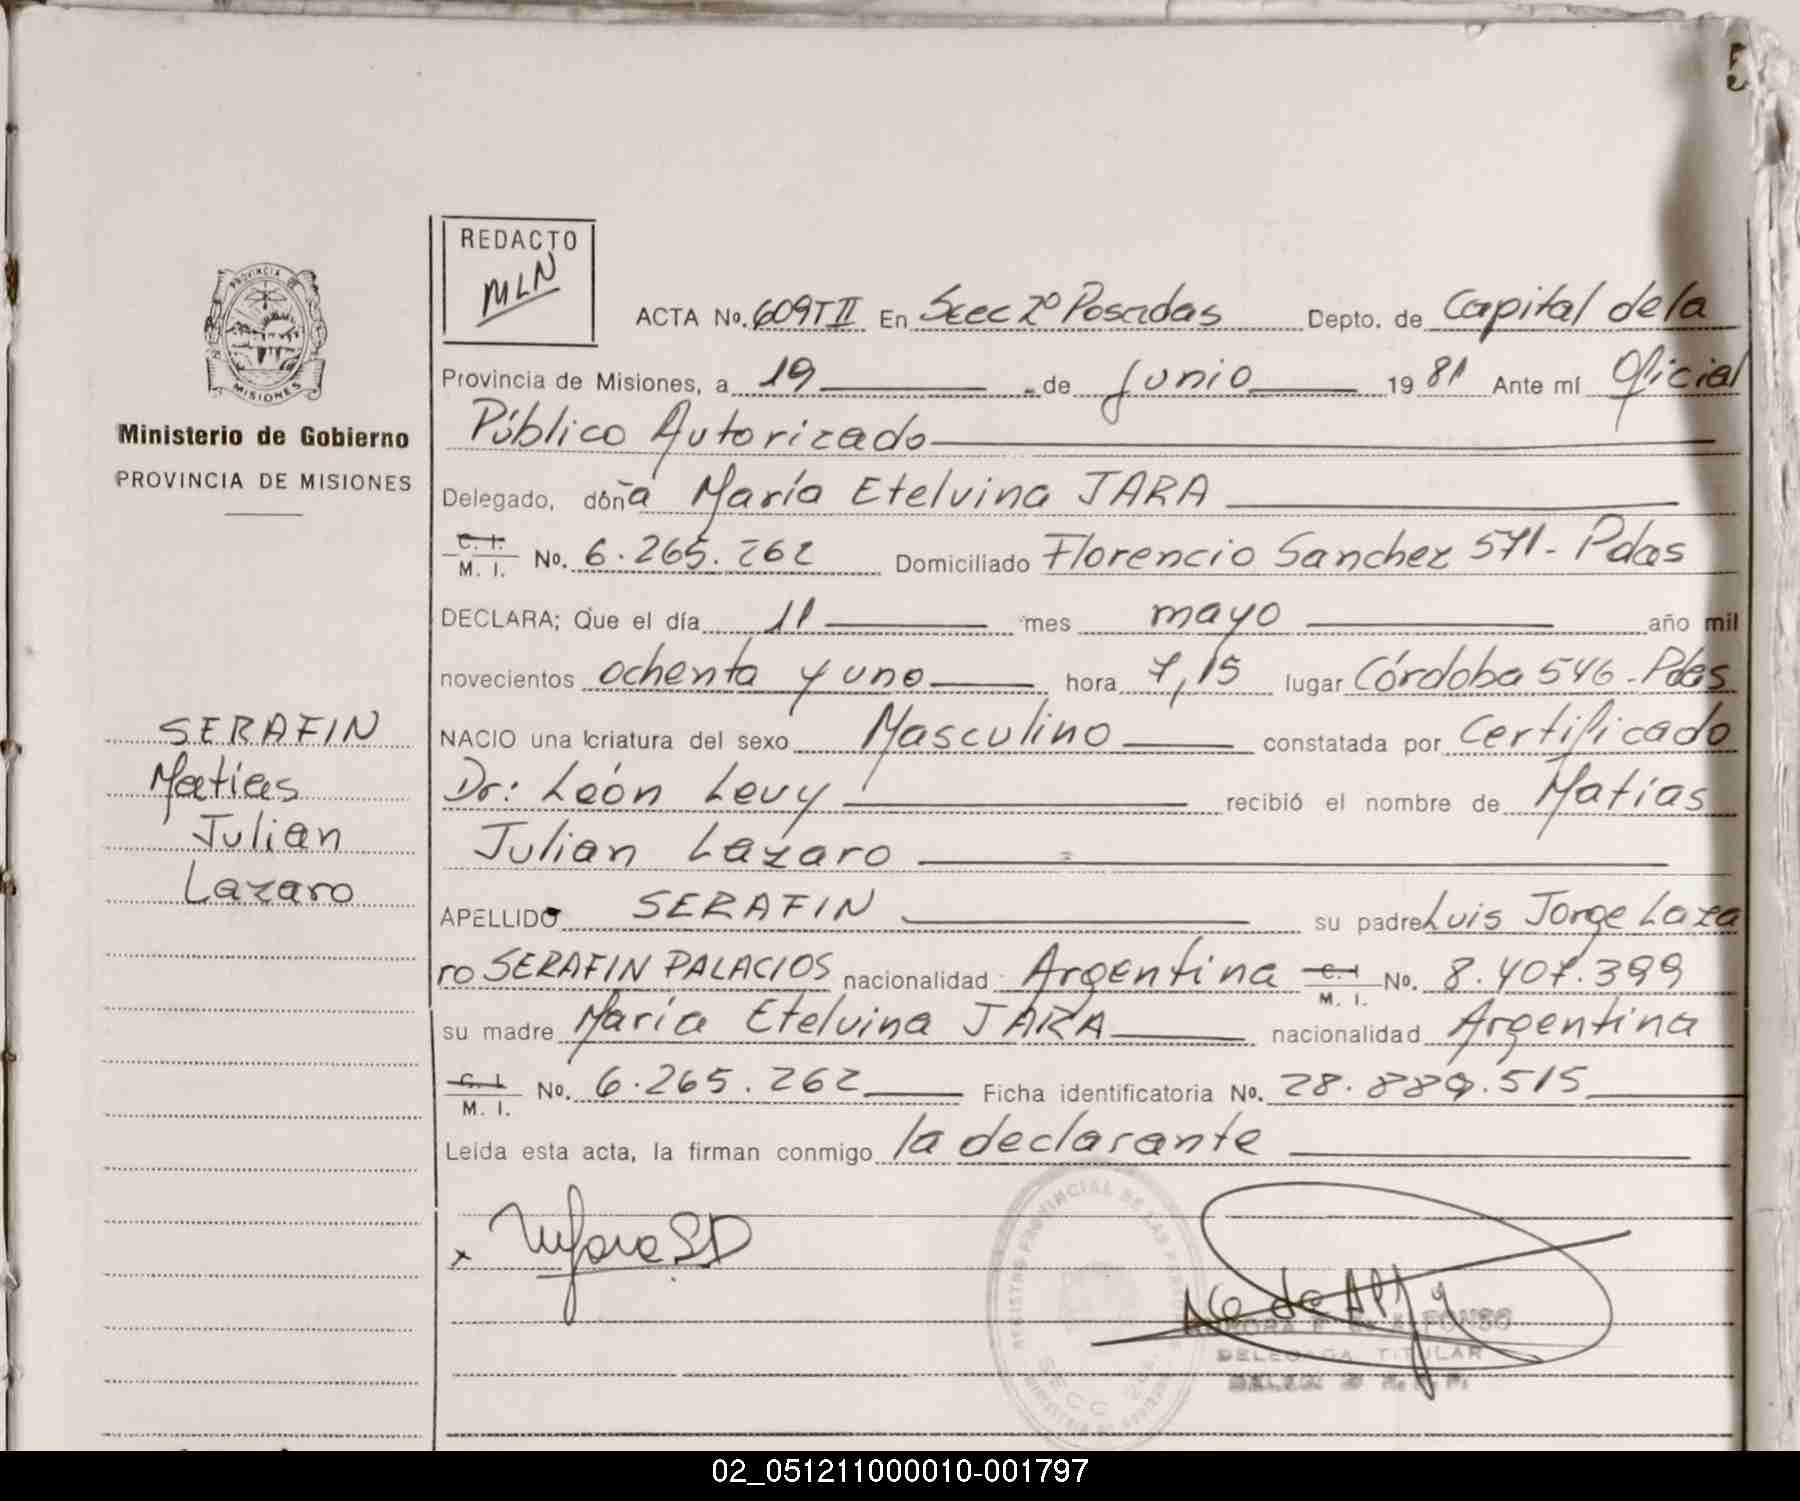 5
REDACTO
MLN
PROVINCIA DE
MISIONES
Ministerio de Gobierno
PROVINCIA DE MISIONES
SERAFIN
Matias
Julian
Lazaro
ACTA No. 609TII En Secc 2º Posadas Depto. de Capital de la
Provincia de Misiones, a 19 de Junio 1981 Ante mí Oficial
Público Autorizado
Delegado, doña María Etelvina JARA
C. I. M. I. No. 6.265.262 Domiciliado Florencio Sanchez 571 - Pdas
DECLARA; Que el día 11 mes mayo año mil
novecientos ochenta y uno hora 7,15 lugar Córdoba 546 - Pdas
NACIO una criatura del sexo Masculino constatada por Certificado
Dr: León Levy recibió el nombre de Matías
Julian Lazaro
APELLIDO SERAFIN su padre Luis Jorge Laza
ro SERAFIN PALACIOS nacionalidad Argentina C. I. M. I. No. 8.407.399
su madre María Etelvina JARA nacionalidad Argentina
C. I. M. I. No. 6.265.262 Ficha identificatoria No. 28.889.515
Leída esta acta, la firman conmigo la declarante
x
REGISTRO PROVINCIAL DE LAS PERSONAS
SECC. 2da.
DELEGADA TITULAR
02_051211000010-001797